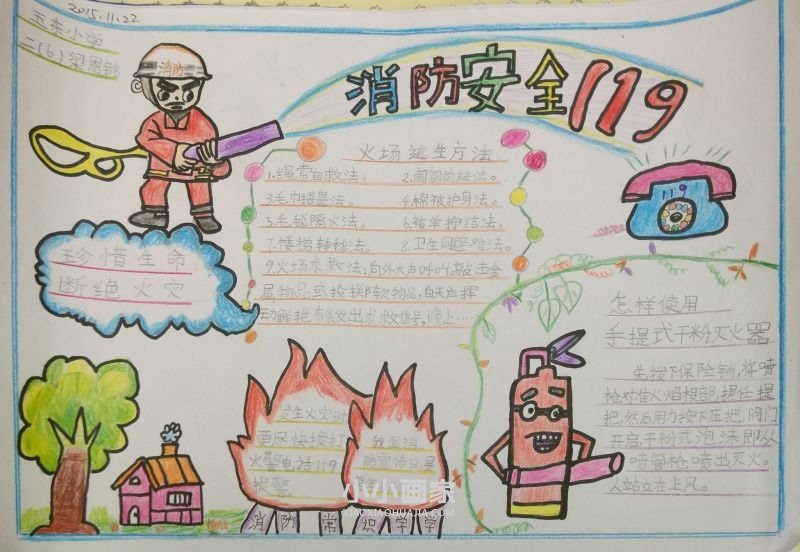 2015.11.22
玉东小学
二(6)梁恩铭
消防
消防安全119
火场逃生方法
1.绳索自救法。
3.毛巾捂鼻法。 4.棉被护身法。
5.毛毯隔火法。 6.被单拧结法。
7.楼梯转移法。 8.卫生间避难法。
9.火场求救法:向外大声呼叫,敲击金
属物品或投掷软物品,白天应挥
动鲜艳布条发出求救信号,晚上……
珍惜生命
断绝火灾
119
怎样使用
手提式干粉灭火器
先拔下保险销,将喷
枪对准火焰根部,握住提
把,然后用力按下压把,阀门
开启,干粉或泡沫即从
喷管枪喷出灭火。
人站立在上风。
发生火灾时
要尽快拨打
火警电话119
报警
我国消
防宣传日是
小小画家
XIAOXIAOHUAJIA.COM
消防常识学学